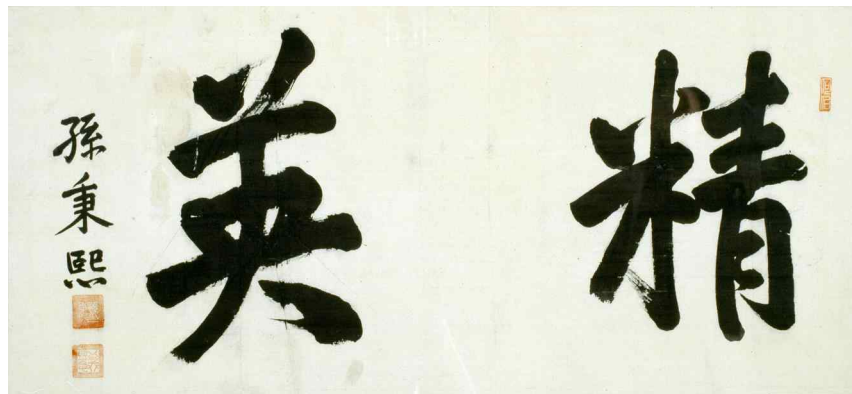 精英
孫秉熙